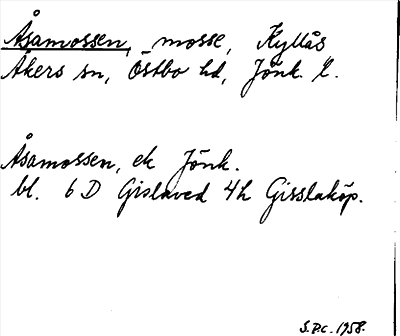 Åsamossen, mosse, Kyllås
Åkers sn, Östbo hd, Jönk. l.
Åsamossen, ek Jönk.
bl. 6 D Gislaved 4h Gisslaköp.
S.P.C. 1958.